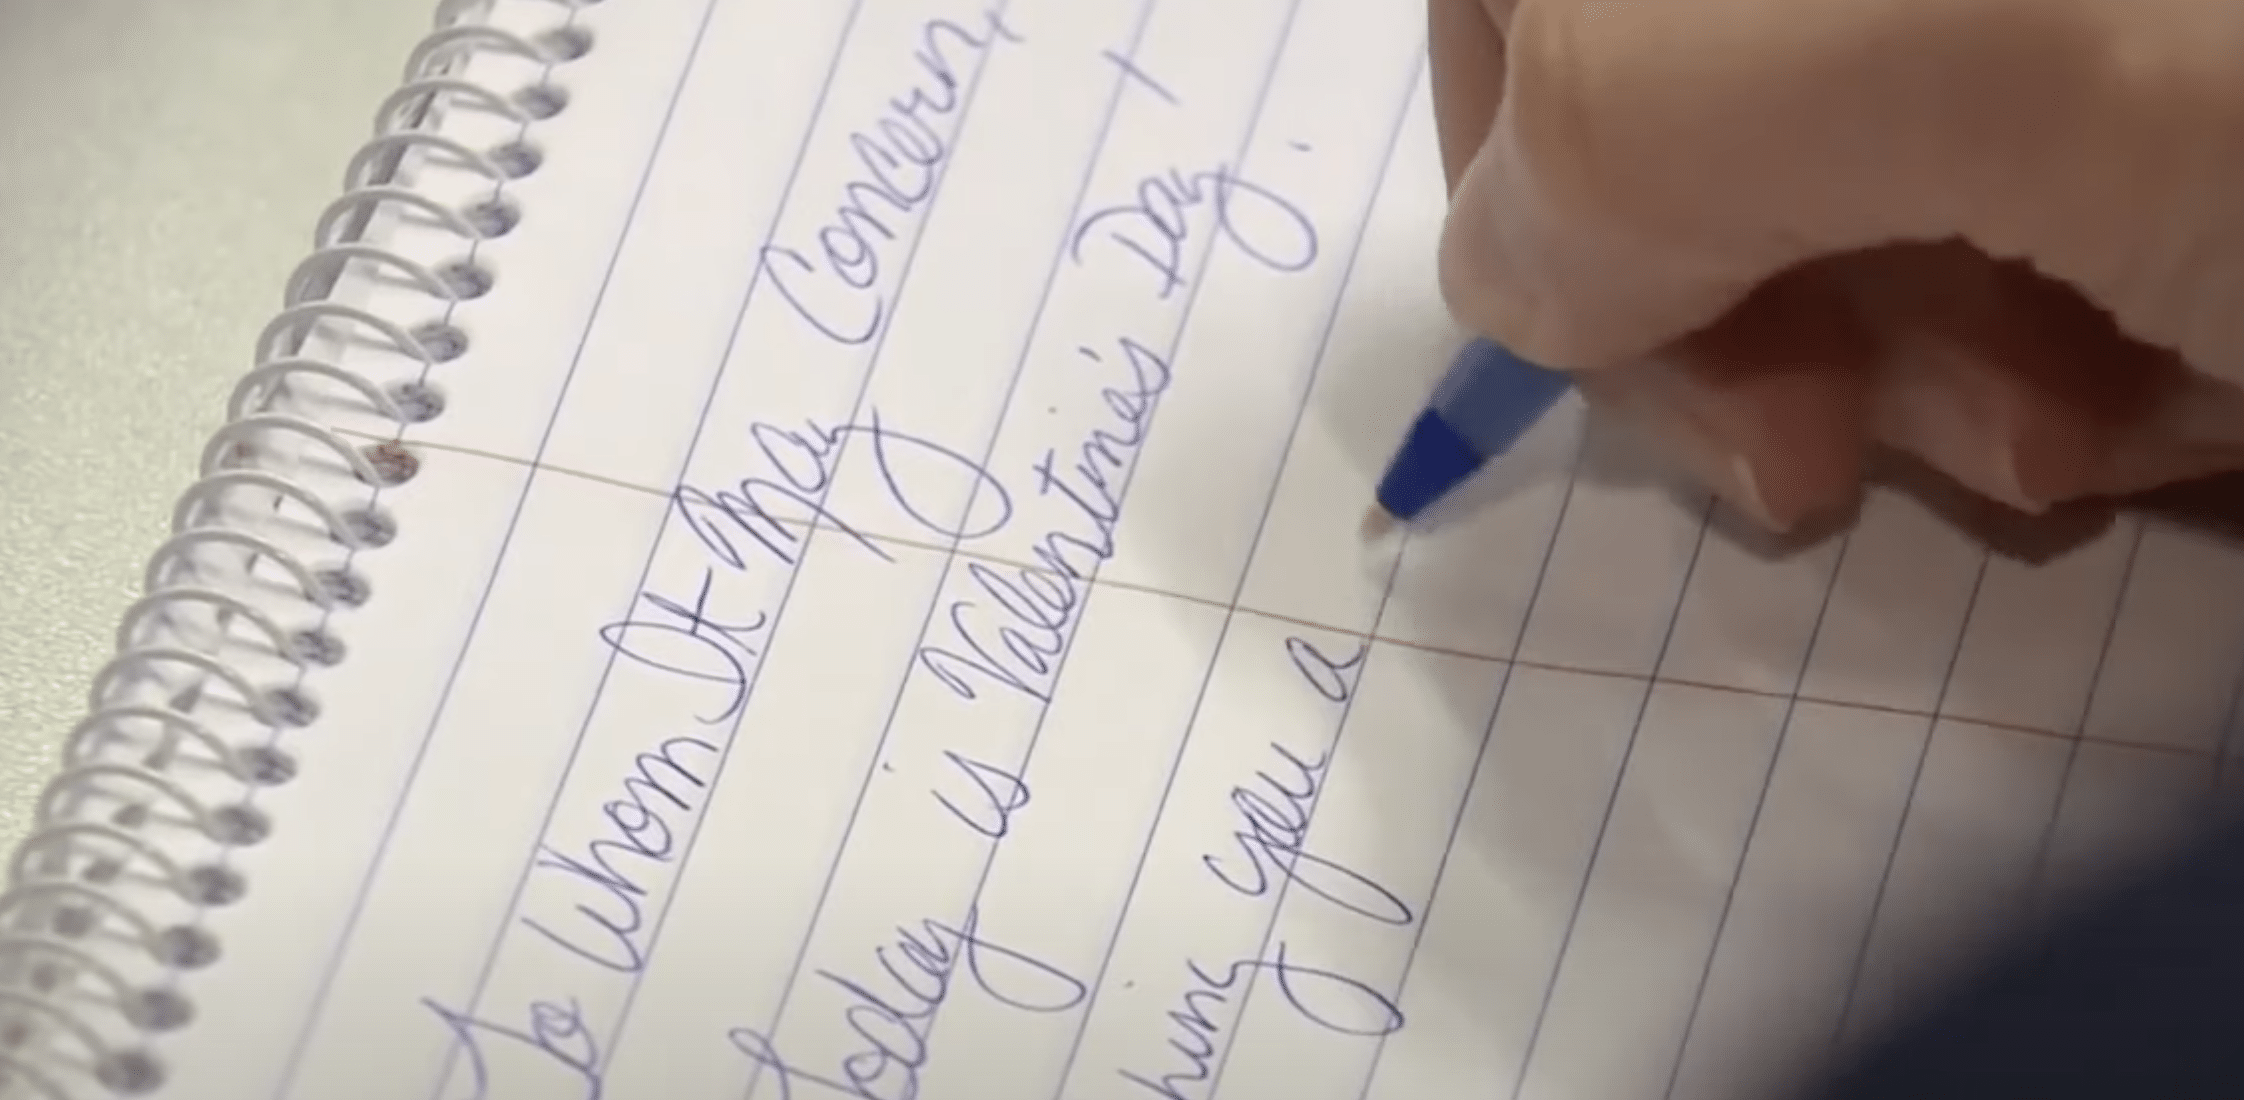 To Whom It May Concern,
Today is Valentine's Day.
hing you a